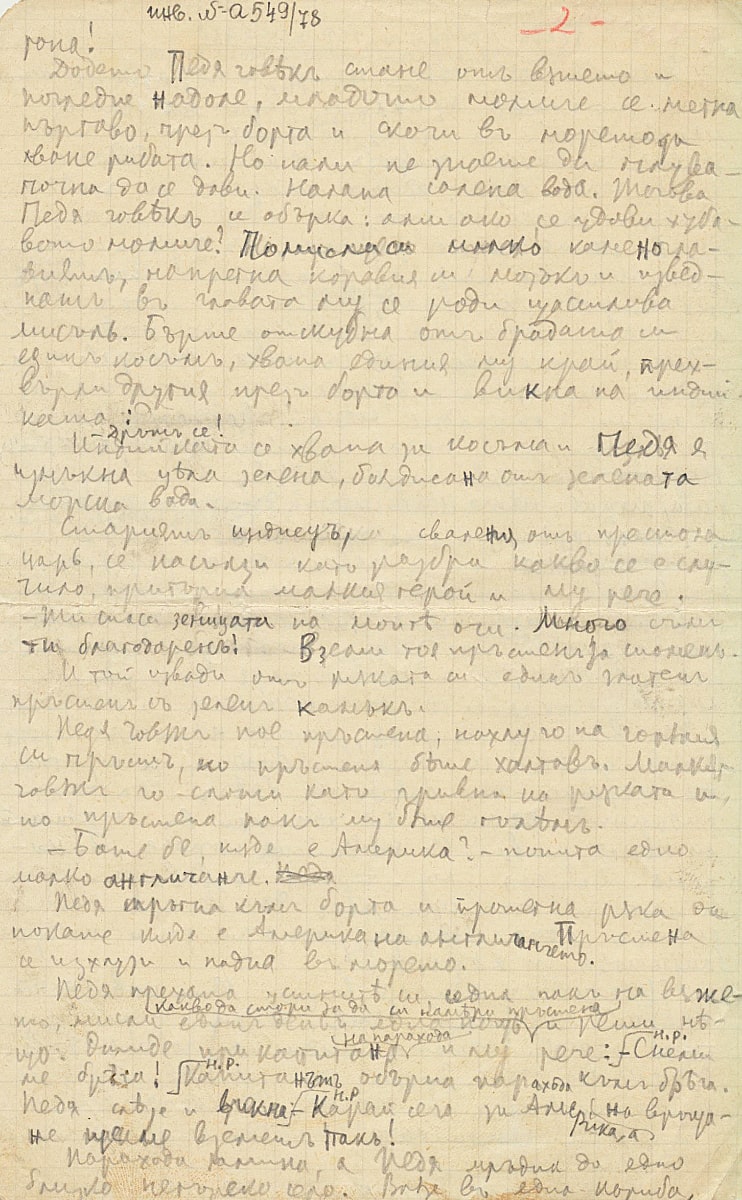 инв. №-А 549/78
-2-
рона!
Додето Педя човѣкъ стане отъ вжжето и
погледне надоле, младото момиче се метна
пъргаво, презъ борта и скочи въ морето да
хване рибата. Но пали не знаеше да плува –
почна да се дави. Налапа солена вода. Тогова
Педя човѣкъ се обърка: ами ако се удави хуба-
вото момиче? Помисли си малко
напрегна коравия си мозъкъ и извед-
нажъ въ главата му се роди щастлива
мисъль. Бърже отскубна отъ брадата си
единъ косъмъ, хвана единия му край, прех-
върли другия презъ борта и викна на индий-
ката:
– Дръжъ се!
Индийката се хвана за косъма и Педя я
измъкна цѣла зелена, боядисана отъ зелената
морска вода.
Стариятъ индиецъ, сваления отъ престола
царь, се насълзи като разбра какво се е слу-
чило, пригърна малкия герой и му рече:
– Ти спаси зеницата на моитѣ очи. Много съмъ
ти благодаренъ! Вземи тоя пръстенъ за споменъ.
И той извади отъ ржката си единъ златенъ
пръстенъ съ зеленъ камъкъ.
Педя човѣкъ пое пръстена, нахлузи го на голѣмия
си пръстъ, но пръстена бѣше халтавъ. Малкия
човѣкъ го сложи като гривна на ржката си,
но пръстена пакъ му бѣше голѣмъ.
– Бате бе, кжде е Америка? – попита едно
малко англичанче.
Педя тръгна къмъ борта и прометна ржка да
покаже кжде е Америка на англичанчето. Пръстена
се изхлузи и падна въ морето.
Педя прехапа устнитѣ си седна пакъ на вжже-
то, мисли какво да стори за да си намѣри пръстена и реши нѣ-
що. Дойде при капитана на парахода и му рече: – Н.Р. Снеми
ме брѣга! Н.Р. Капитанътъ обърна парахода къмъ брѣга.
Педя слѣзе и викна: – Н.Р. Карай сега за Америка, а на връща-
не ще ме вземешъ пакъ!
Парахода замина, а Педя отъ до едно
близко село. Влѣзе въ една колиба,